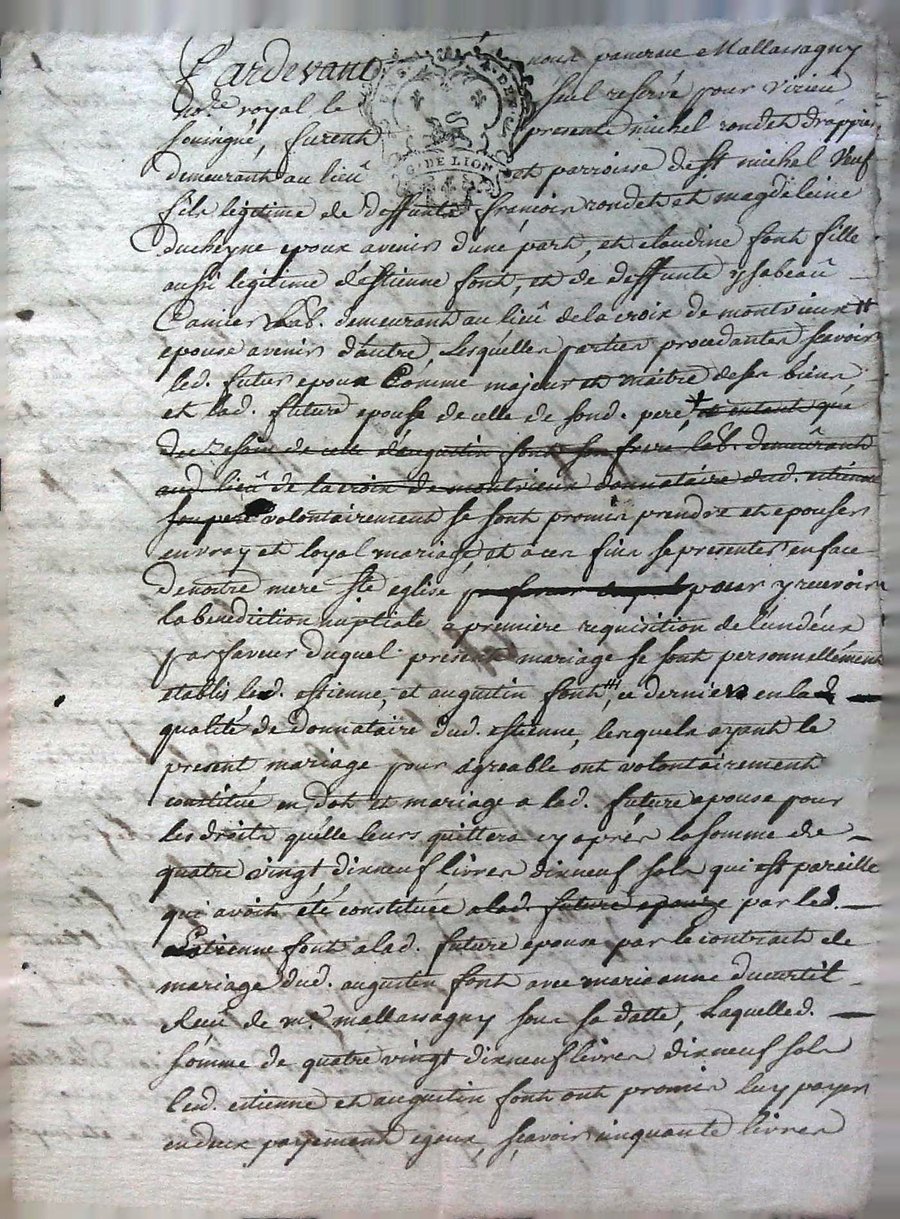 Pardevant nous pancrace Mallassagny
no.re royal le seul reservé pour virieu
soussigné, furent presents michel rondet drappier
demeurant au lieu et parroisse de st michel veuf
fils légitime de deffunts françois rondet et magdeleine
ducheyne epoux avenir d'une part, et claudine font fille
aussi légitime d'estienne font, et de deffunte ysabeau
Camier lab. demeurant au lieu de la croix de montvieux
epouse avenir d'autre, lesquelles parties procedantes scavoir
led. futur epoux Comme majeur et maitre de ses biens
et lad. future epouse de celle de sond. pere, et entant que
de celle d'augustin font son frere lab. demeurant
aud. lieu de la croix de montvieux donnataire dud. etienne
son pere volontairement se sont promis prendre et epouser
en vray et loyal mariage, et a ces fins se presenter en face
de notre mere ste eglise pour y recevoir
la benediction nuptiale a premiere requisition de l'un d'eux
par faveur duquel present mariage se sont personnellement
etablis led. estienne, et augustin font, ce dernier en lad.
qualité de donnataire dud. estienne, lesquels ayant le
present mariage pour agreable ont volontairement
constitué en dot et mariage a lad. future epouse pour
les droits qu'elle leurs quittera cy aprés la somme de
quatre vingt dixneuf livres dixneuf sols qui est pareille
qui avoit été constituée a lad. future epouse par led.
Estienne font a lad. future epouse par le contract de
mariage dud. augustin font avec marianne ducurtil
Receu de me. mallassagny sous sa datte, Laquelled.
somme de quatre vingt dixneuf livres dixneuf sols
lesd. etienne et augustin font ont promis luy payer
en deux payements egaux, scavoir cinquante livres
G. DE LION